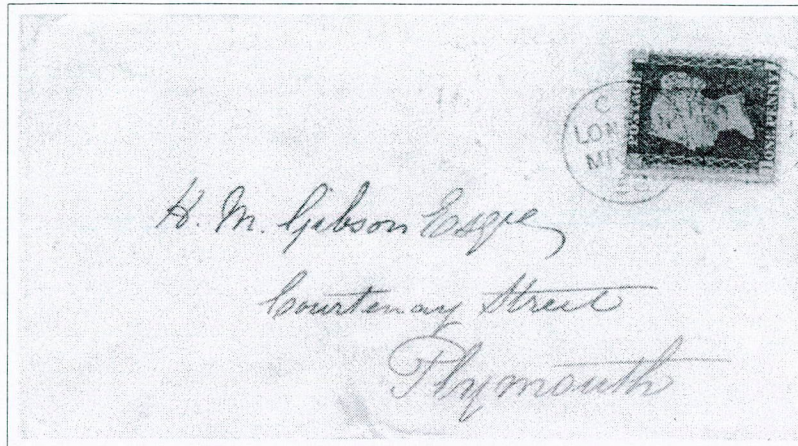 POSTAGE
ONE PENNY
C
LON
MR
H. M. Gibson Esqre
Courtenay Street
Plymouth